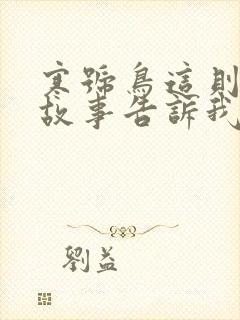 寒號鳥這則
故事告訴我
劉益